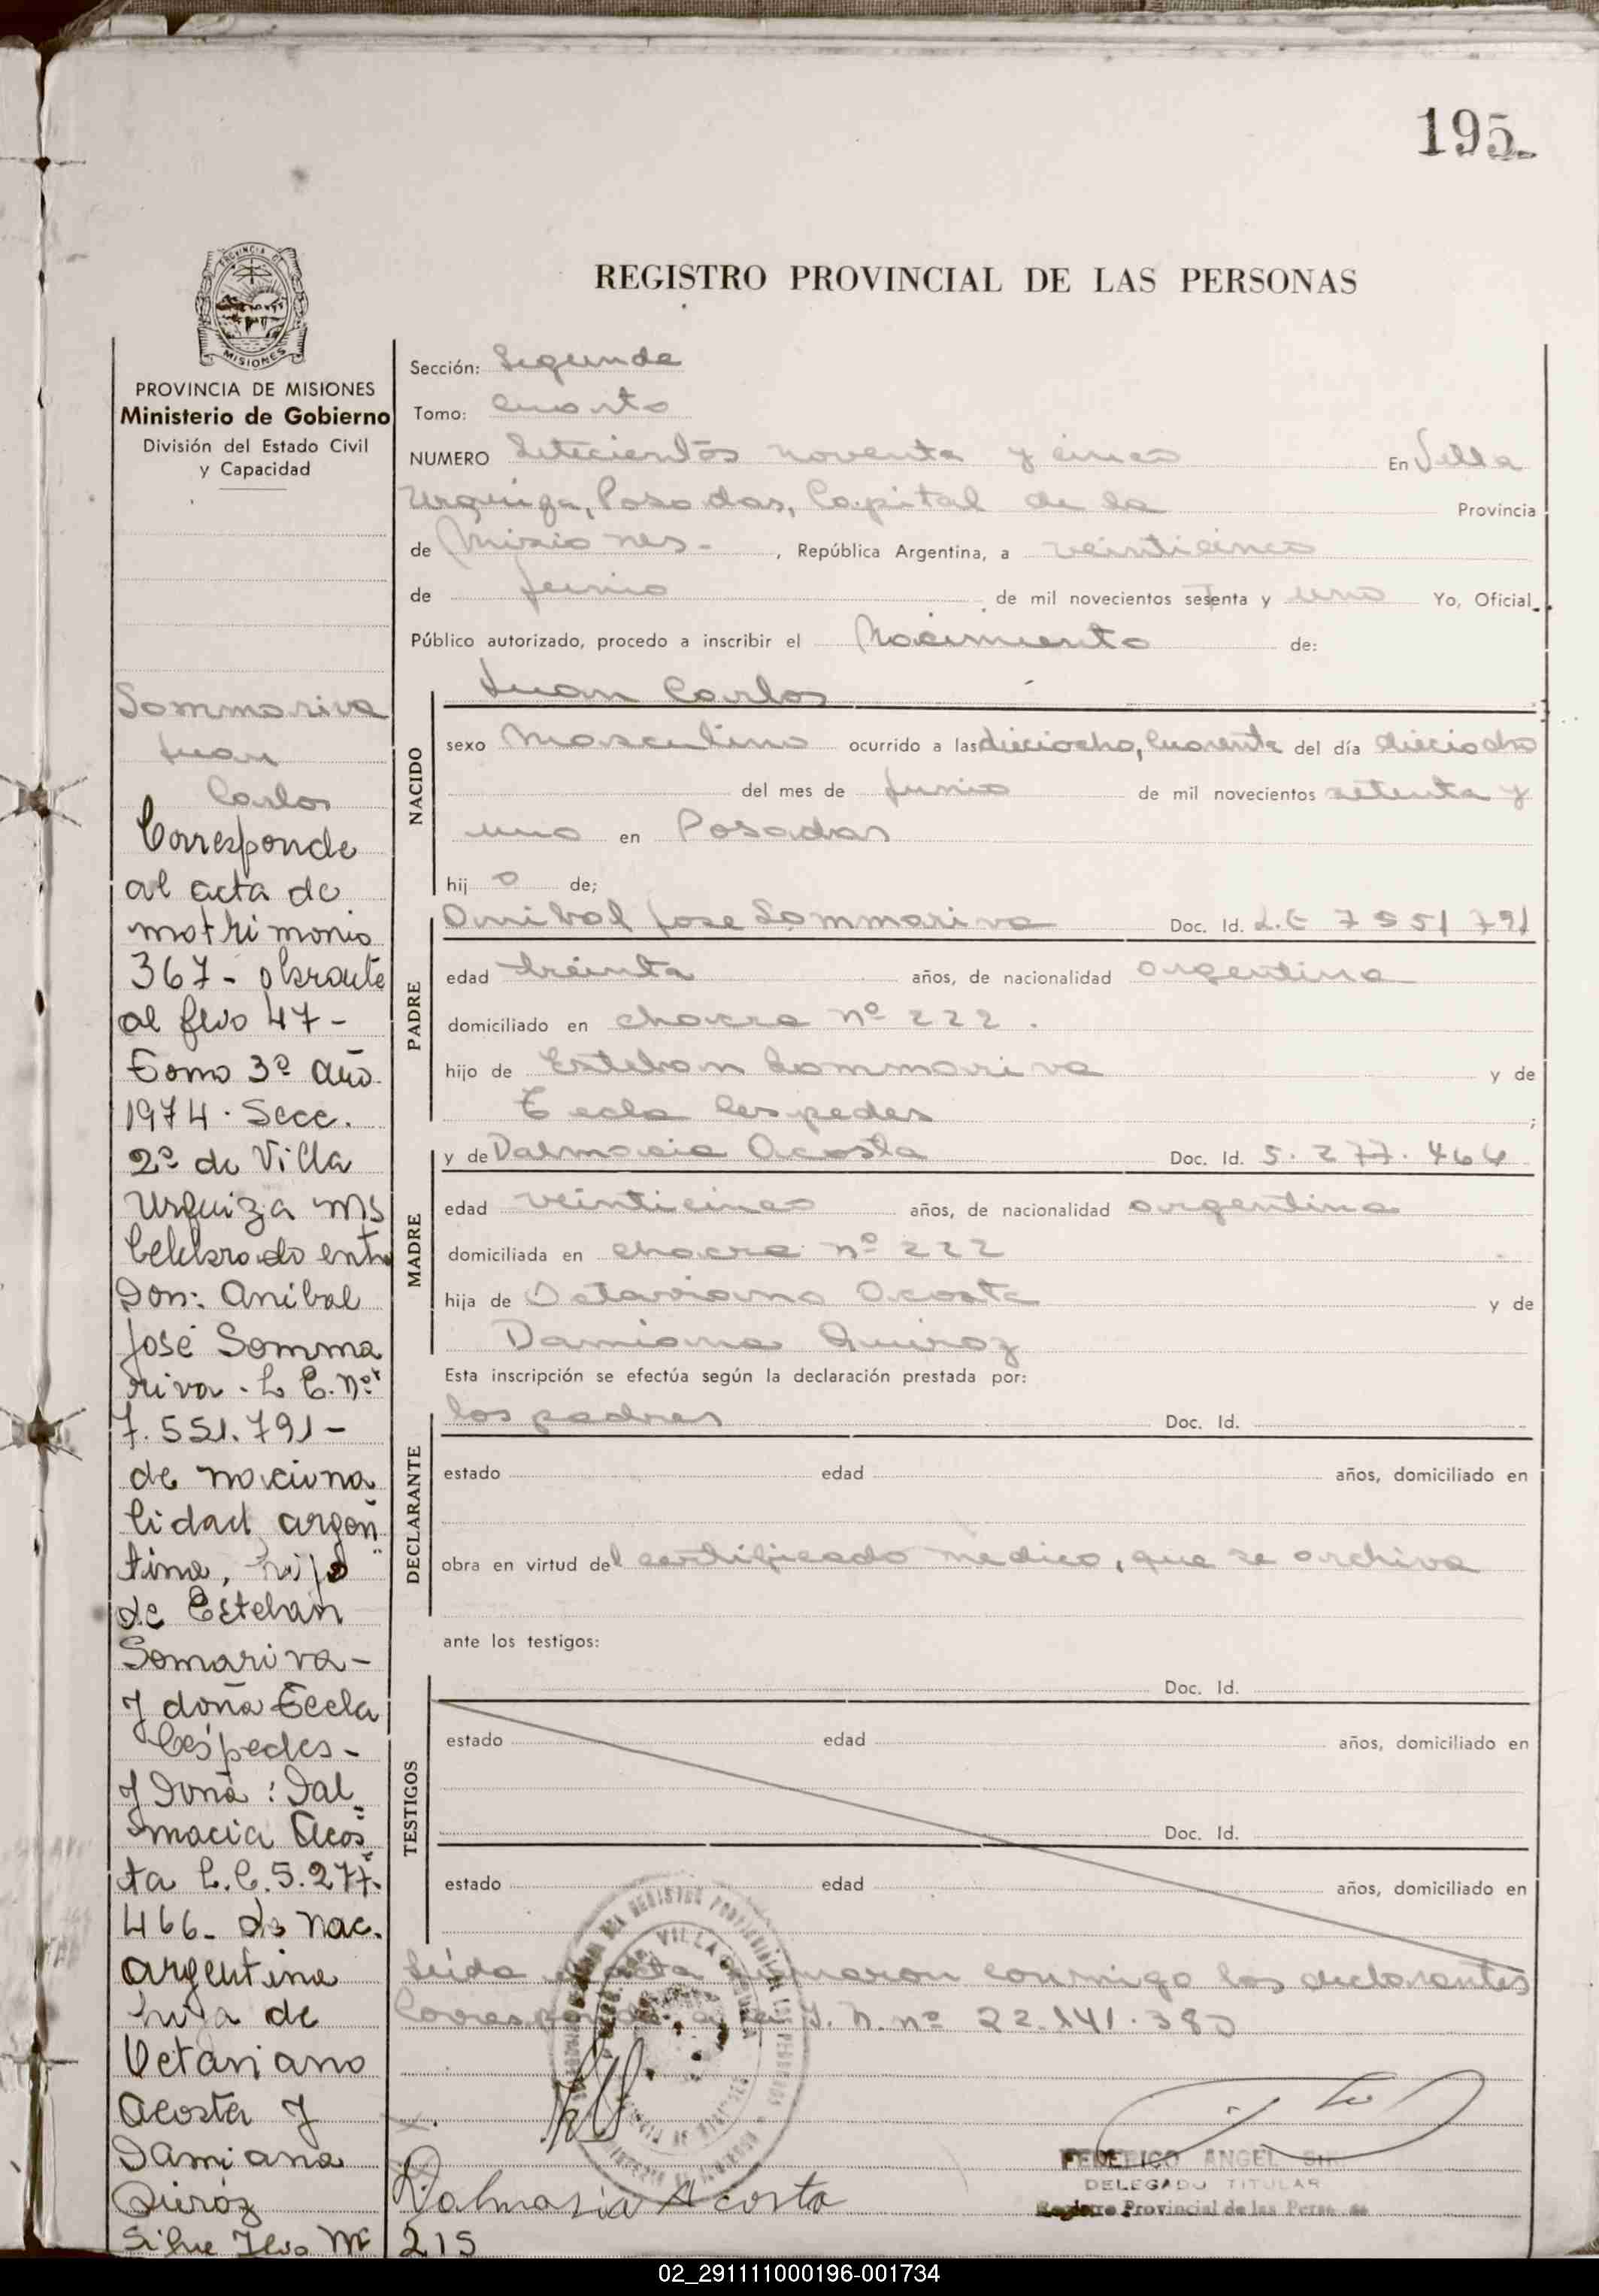 195
REGISTRO PROVINCIAL DE LAS PERSONAS
PROVINCIA DE MISIONES
Ministerio de Gobierno
División del Estado Civil
y Capacidad
Sommariva
Juan
Carlos
Corresponde
al acta de
matrimonio
367- obrante
al folio 47-
Tomo 3º año
1974. Secc.
2º de Villa
Urquiza Ms
Celebrado entre
Don: Anibal
José Somma
riva. L E. Nº
7.551.791-
de naciona
lidad argen
tina, hijo
de Esteban
Somariva-
y doña Tecla
Céspedes-
y Doña: Dal
macia Acos
ta L.C. 5.277.
466- de nac.
argentina
hija de
Octaviano
Acosta y
Damiana
Quiróz
215
Sección: Segunda
Tomo: Cuarto
NUMERO Setecientos noventa y cinco En Villa
Urquiza, Posadas, Capital de la Provincia
de Misiones- , República Argentina, a veinticinco
de Junio de mil novecientos setenta y uno Yo, Oficial
Público autorizado, procedo a inscribir el Nacimiento de:
NACIDO
Juan Carlos
sexo Masculino ocurrido a las dieciocho, cuarenta del día dieciocho
del mes de Junio de mil novecientos setenta y
uno en Posadas
hij o de;
PADRE
Anibal Jose Sommariva Doc. Id. L.E 7551791
edad treinta años, de nacionalidad argentina
domiciliado en chacra nº 222.
hijo de Esteban Sommariva y de
Tecla Cespedes ;
MADRE
y de Dalmacia Acosta Doc. Id. 5.277.466
edad veinticinco años, de nacionalidad argentina
domiciliada en chacra nº 222
hija de Octaviano Acosta y de
Damiana Quiroz
Esta inscripción se efectúa según la declaración prestada por:
DECLARANTE
los padres Doc. Id.
estado edad años, domiciliado en
obra en virtud del certificado medico, que se archiva
ante los testigos:
TESTIGOS
Doc. Id.
estado edad años, domiciliado en
Doc. Id.
estado edad años, domiciliado en
Leída el acta firmaron conmigo los declarantes
Corresponde a la I. N. nº 22.141.380
Dalmasia Acosta
FEDERICO ANGEL
DELEGADO TITULAR
Registro Provincial de las Personas
02_291111000196-001734